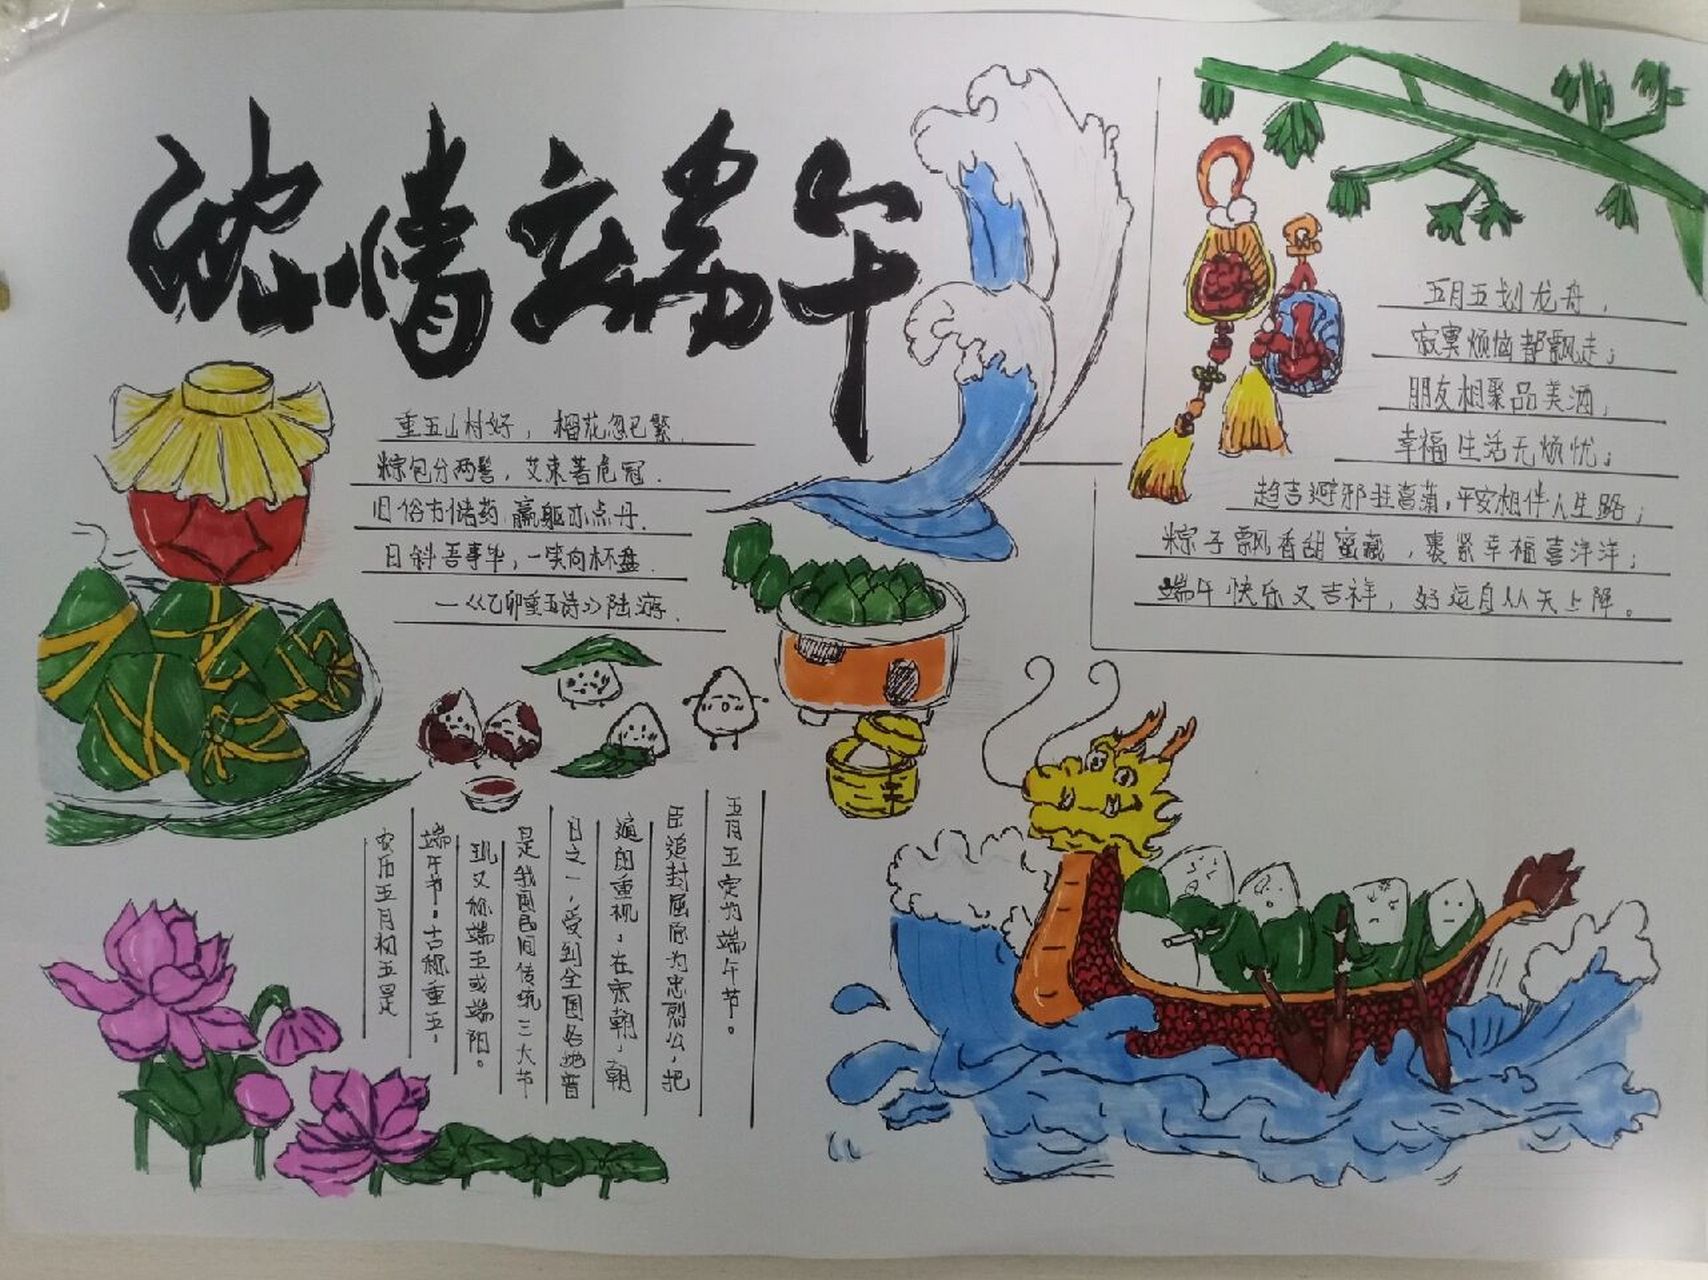 浓情端午
重五山村好，榴花忽已繁.
粽包分两髻，艾束著危冠.
旧俗方储药,羸躯亦点丹.
日斜吾事毕，一笑向杯盘.
—《乙卯重五诗》陆游.
五月五划龙舟，
寂寞烦恼都飘走；
朋友相聚品美酒，
幸福生活无烦忧；
趋吉避邪挂菖蒲，平安相伴人生路；
粽子飘香甜蜜藏，裹紧幸福喜洋洋；
端午快乐又吉祥，好运自从天上降。
农历五月初五是
端午节。古称重五，
现又称端五或端阳。
是我国民间传统三大节
日之一，受到全国各地普
遍的重视，在宋朝，朝
臣追封屈原为忠烈公，把
五月五定为端午节。